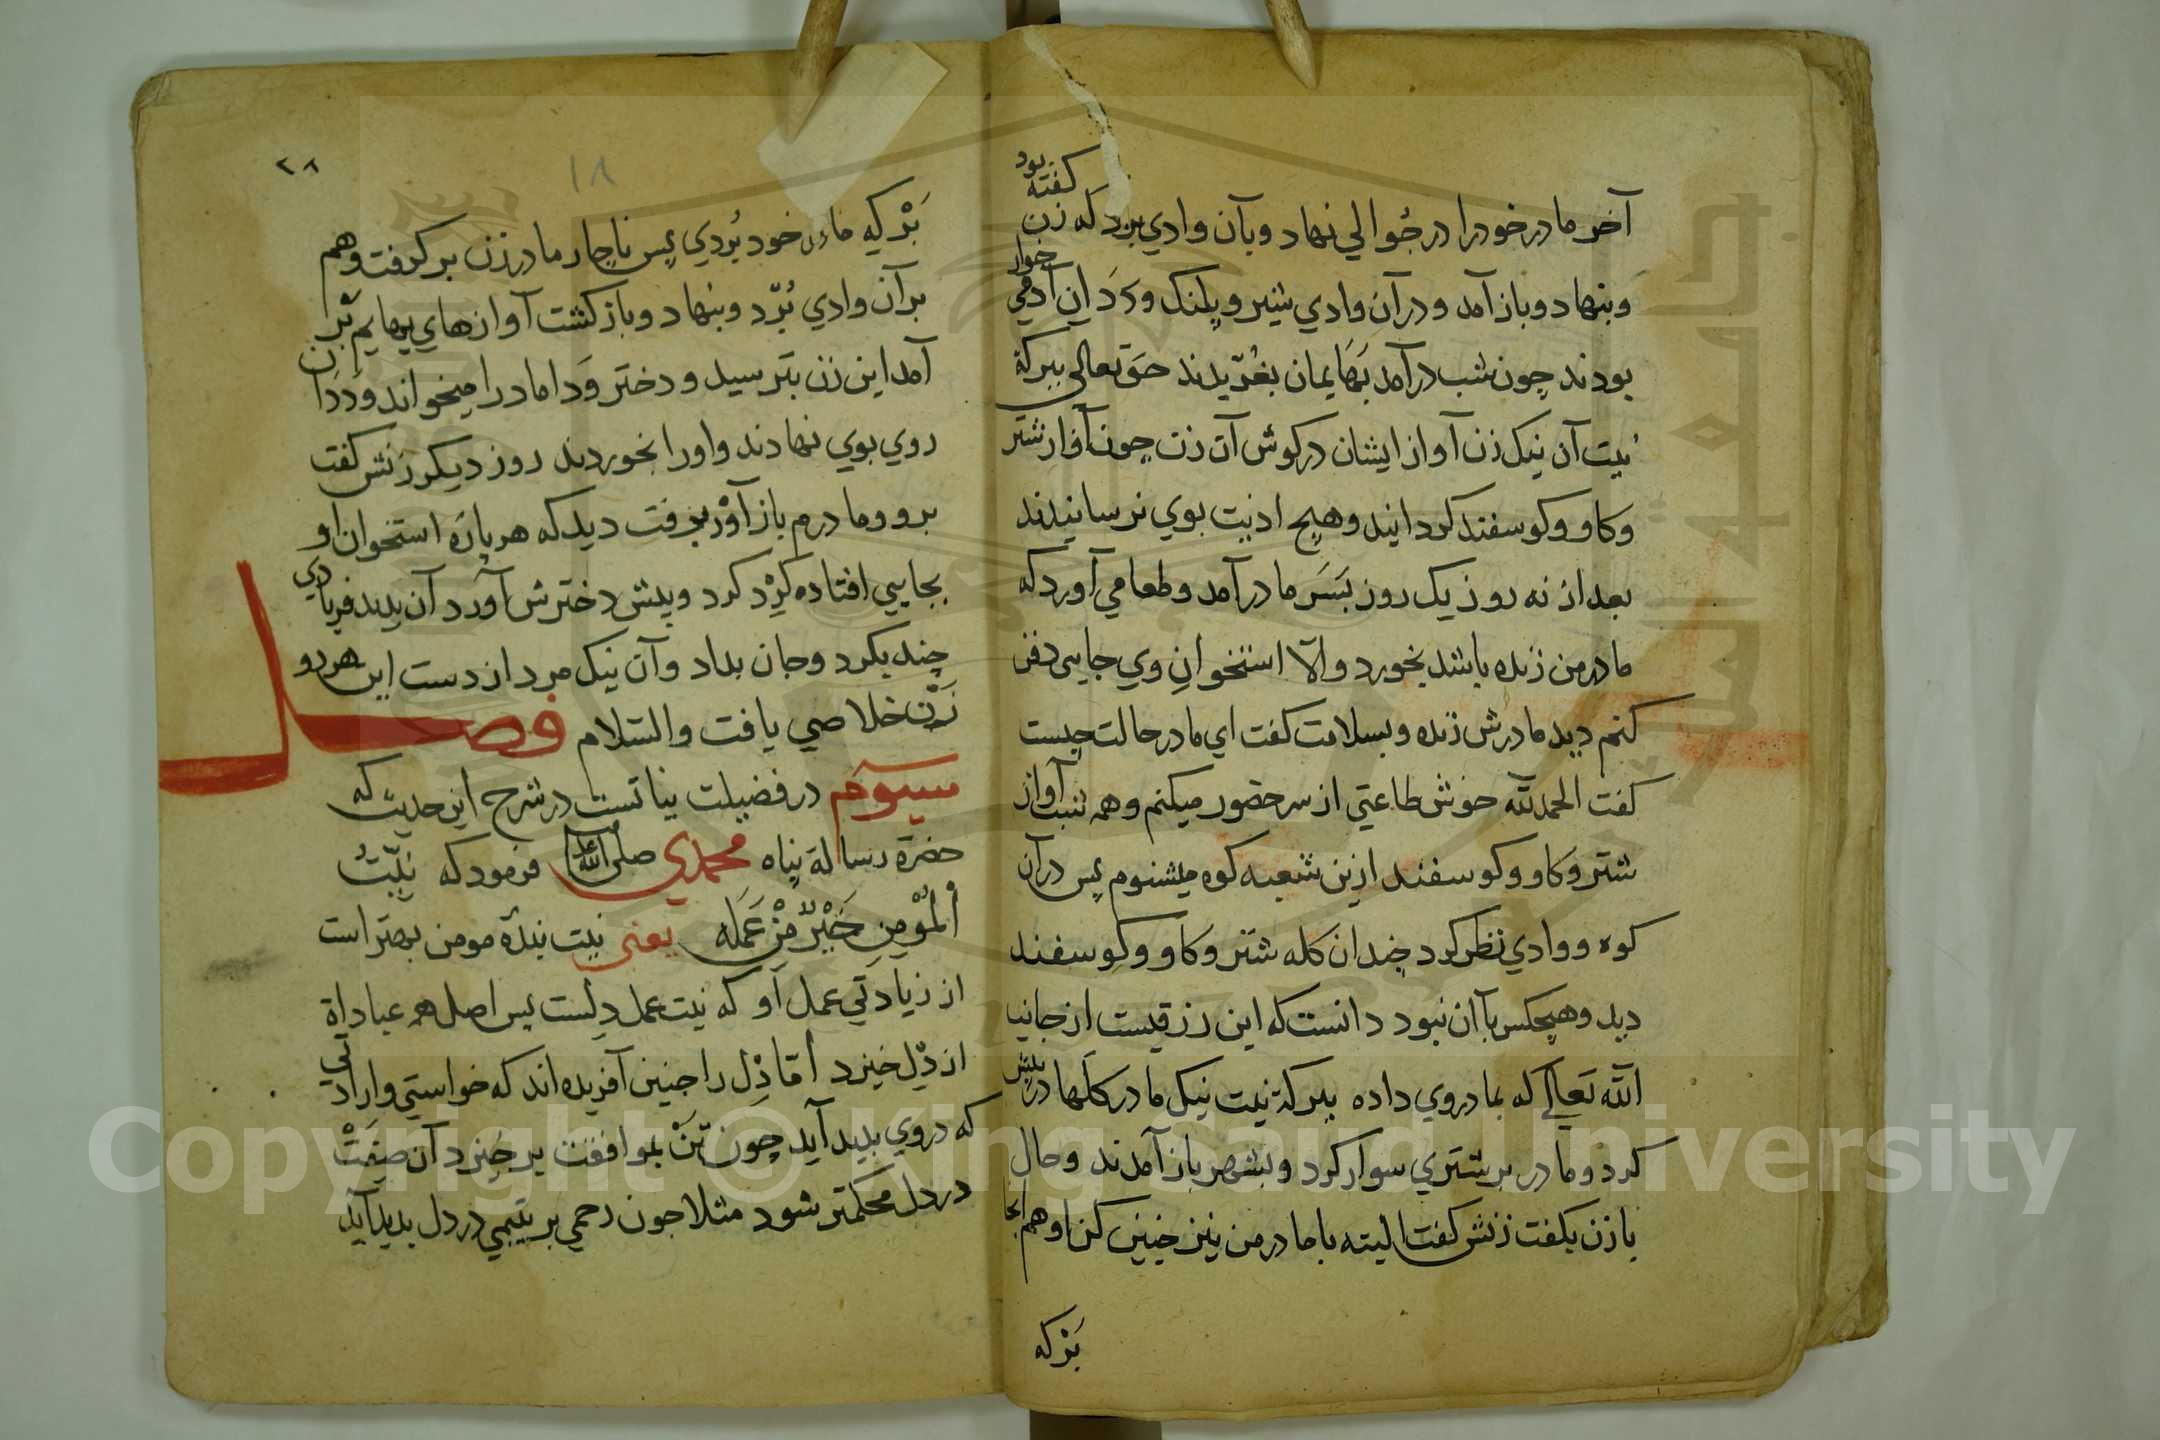 آخر مادر خودرا در جوالي نهاد و بآن وادي برد که زن
گفته بود
و بنهاد و باز آمد و در آن وادي شیر و پلنک و ددان آدمي
خوار
بودند چون شب در آمد بهایمان بغریدند حق تعالی ببرکة
نیت آن نیک زن آواز ایشان در کوش آن زن چون آواز شتر
و کاو و کوسفند کردانید و هیچ اذیت بوي نرسانیدند
بعد از نه روز یک روز بسر مادر آمد و طعامي آورد که
مادر من زنده باشد بخورد و الا استخوان وي جایی دفن
کنم دید مادرش زنده و بسلامت کفت اي مادر حالت چیست
کفت الحمد لله خوش طاعتي از سر حضور میکنم و همه شب آواز
شتر و کاو و کوسفند ازین شعبه کوه میشنوم پس در آن
کوه و وادي نظر کرد چندان کله شتر و کاو و کوسفند
دید و هیچکس با آن نبود دانست که این رزقیست از جانب
الله تعالی که بمادر وي داده ببرکة نیت نیک مادر کلها در پیش
کرد و مادر بر شتري سوار کرد و بشهر باز آمدند و حال
با زن بکفت زنش کفت البته با مادر من نیز چنین کن او هم آنجا
بَر که
٢٨
١٨
بَر که مادر خود بُردي پس ناچار مادر زن بر کرفت و هم
بر آن وادي بُرد و بنهاد و باز کشت آوازهاي بهایم بر
آمد این زن بترسید و دختر و داماد را میخواند و ددان
روي بوي نهادند و اورا بخوردند روز دیکر زنش کفت
برو و مادرم باز آور برفت دید که هر پاره استخوان او
بجایي افتاده کرد کرد و پیش دخترش آورد آن پلید فریادي
چند بکرد و جان بداد و آن نیک مرد از دست این هر دو
زن خلاصي یافت والسلام فصل
سیوم در فضیلت نیاتست در شرح این حدیث که
حضرة رسالة پناه محمدي صلی الله فرمود که نِیّتُ
الْمؤْمِنِ خَیْرٌ مِنْ عَمَلِه یعنی نیت بندۀ مومن بهتر است
از زیادتي عمل او که نیت عمل دلست پس اصل همه عباداة
از دِل خیزد امّا دِل را چنین آفریده اند که خواستي و ارادتي
که در وي بدید آید چون تَنْ بموافقت بر خیزد آن صِفَتْ
در دل محکمتر شود مثلا چون رحمي بر یتیمي در دل بدید آید
Copyright © King Saud University